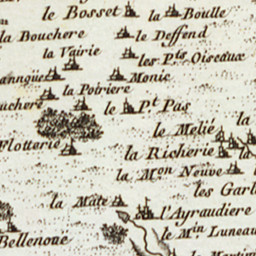 le Bosset
la Boulle
la Bouchere
le Deffend
la Vairie
les Pts Oiseaux
Monic
la Poiriere
le Pt Pas
le Melié
la
Flotterie
la Richerie
la Mon Neuve
les Garl
la Mate
l'Ayraudiere
le Min Luneau
Bellenoue